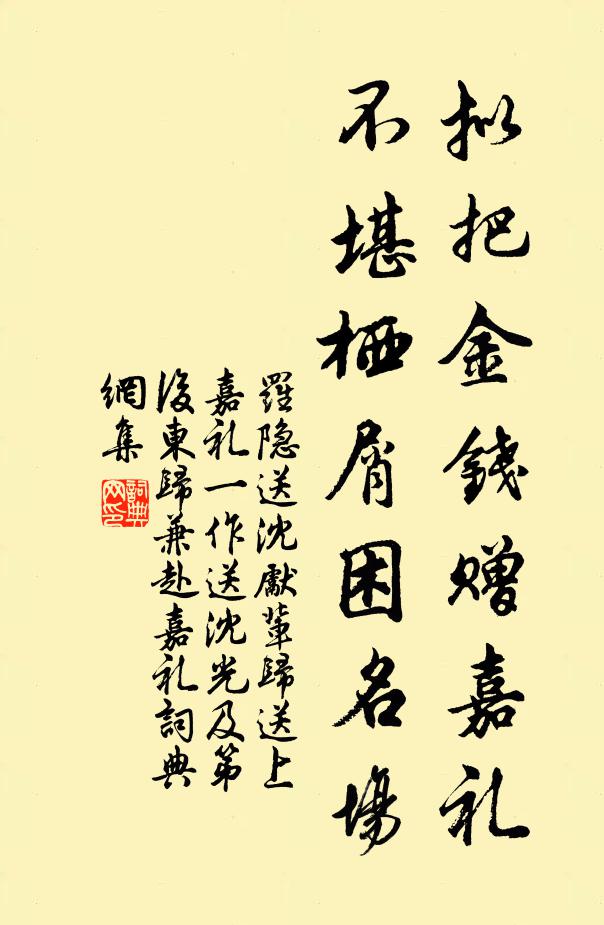 拟把金錢贈嘉礼
不堪栖屑困名場
羅隐送沈獻輩歸送上
嘉礼一作送沈光及第
後東歸兼赴嘉礼詞典
網集
詞典
网印